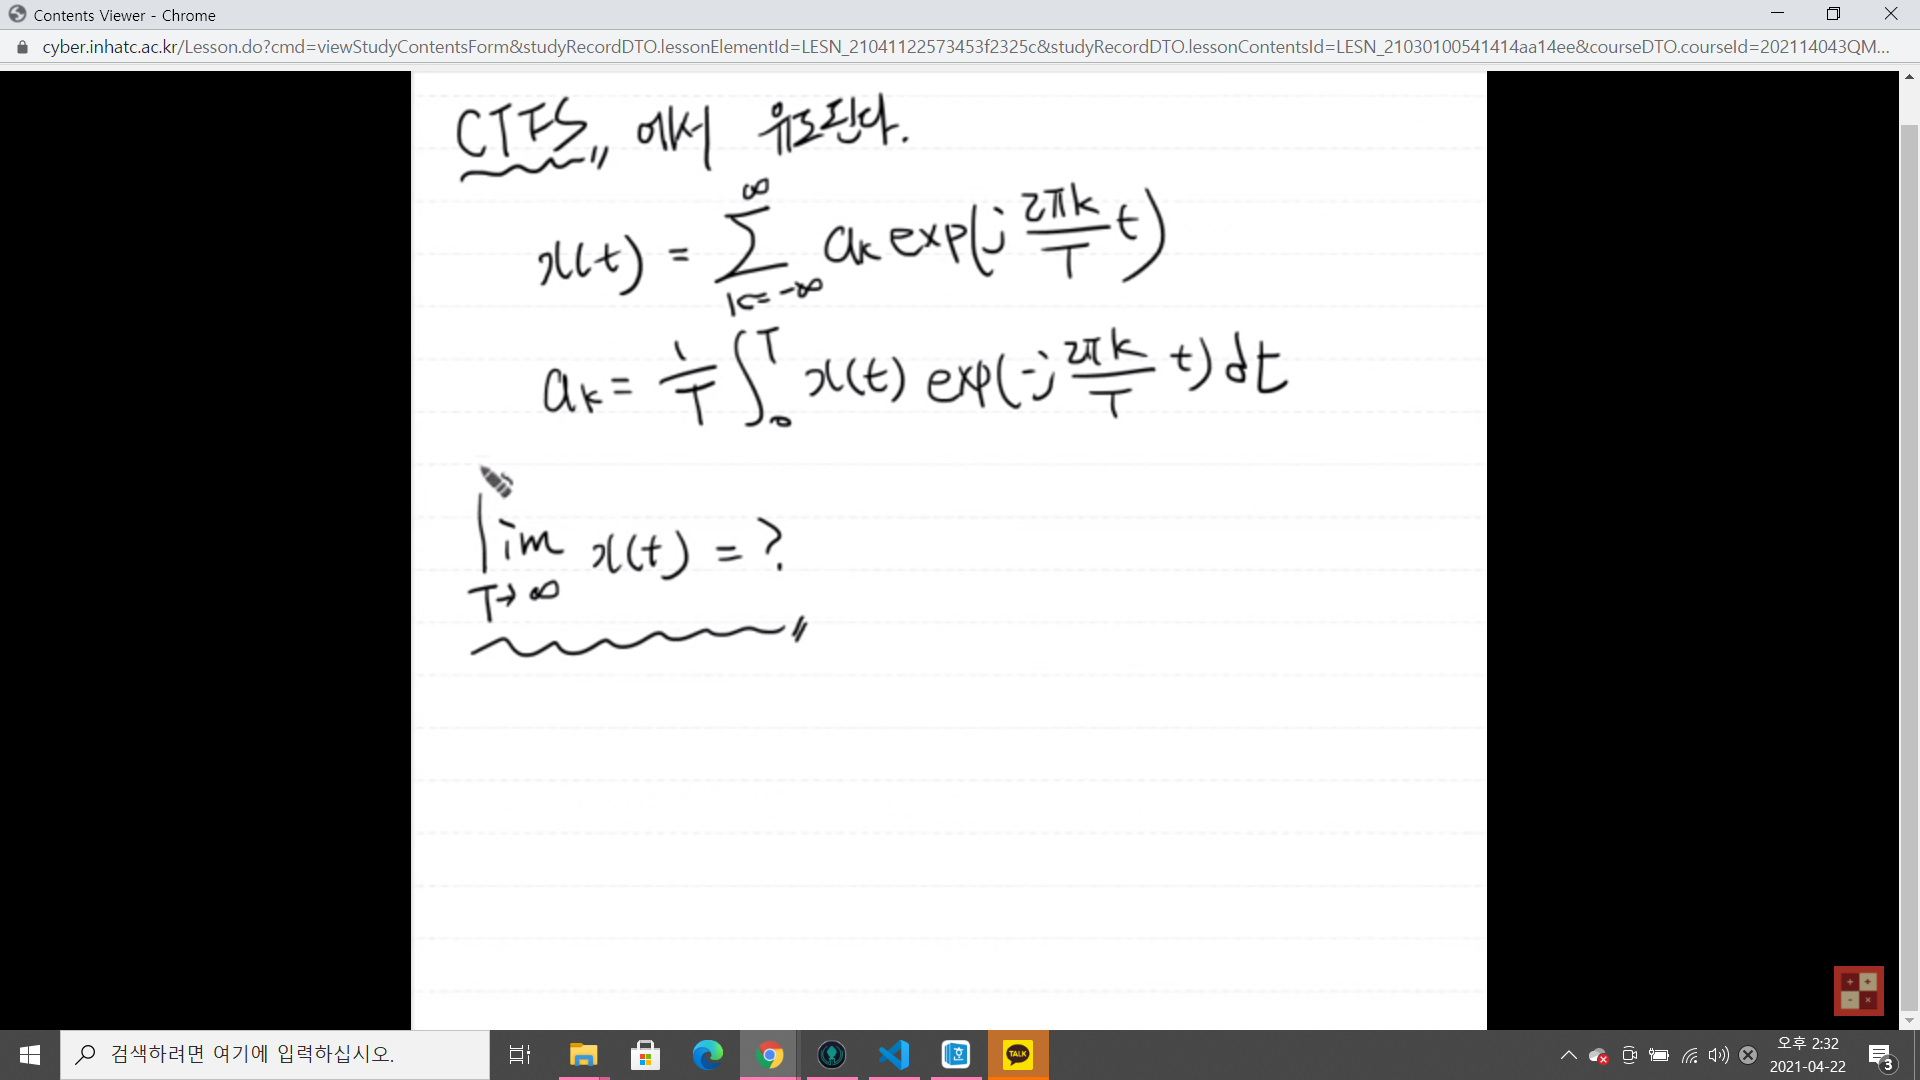 Contents Viewer - Chrome
cyber.inhatc.ac.kr/Lesson.do?cmd=viewStudyContentsForm&studyRecordDTO.lessonElementId=LESN_21041122573453f2325c&studyRecordDTO.lessonContentsId=LESN_21030100541414aa14ee&courseDTO.courseId=202114043QM...
CTFS 에서 유도된다.
x(t) = ∑_{k=-∞}^{∞} a_k exp(j 2πk/T t)
a_k = 1/T ∫_0^T x(t) exp(-j 2πk/T t) dt
lim_{T→∞} x(t) = ?
검색하려면 여기에 입력하십시오.
TALK
오후 2:32
2021-04-22
3